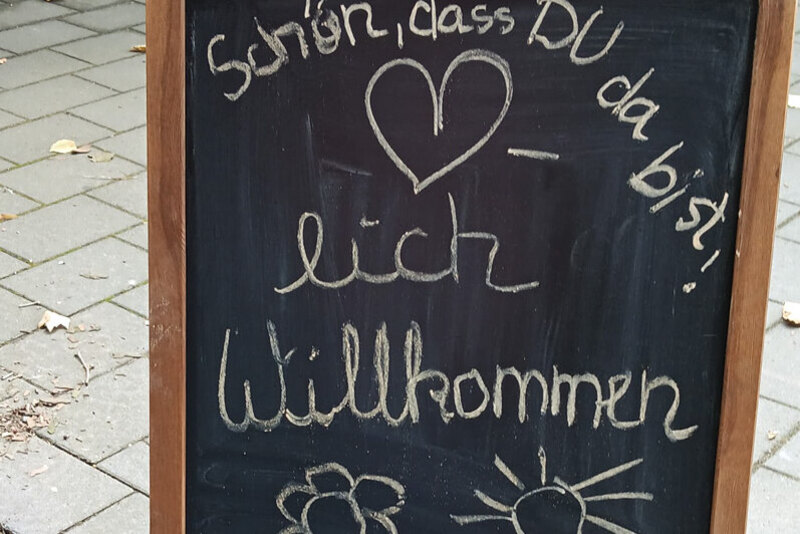 Schön, dass DU da bist!
-
lich
Willkommen